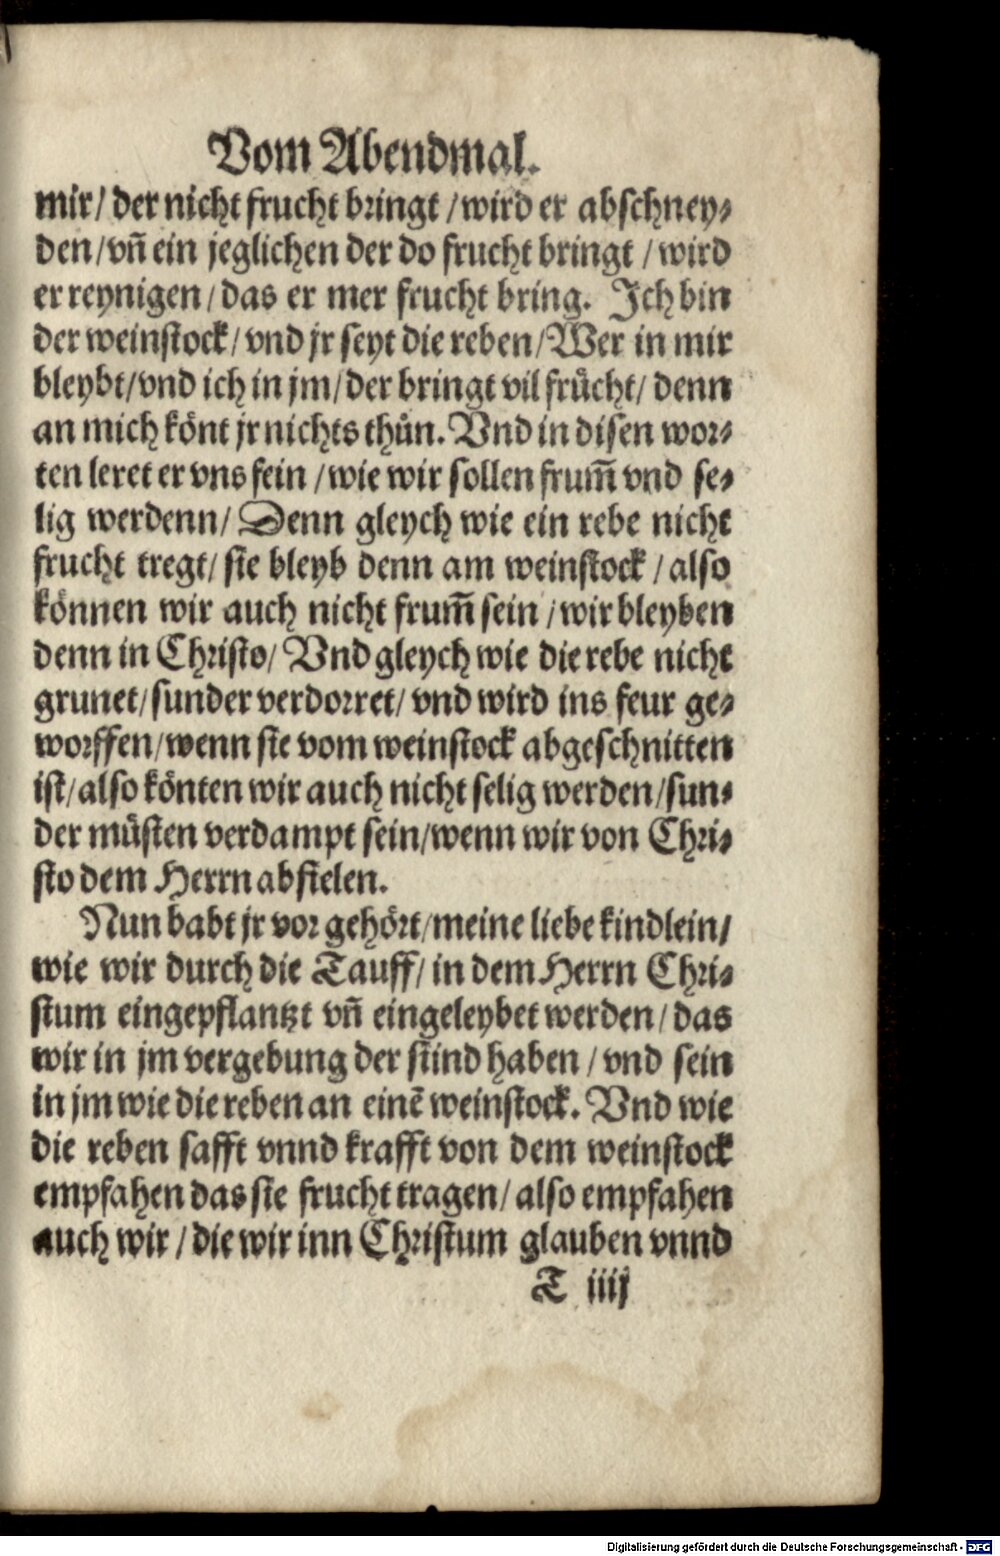 Vom Abendmal.
mir/ der nicht frucht bringt / wird er abschney⸗
den/ vñ ein jeglichen der do frucht bringt / wird
er reynigen/ das er mer frucht bring. Ich bin
der weinstock/ vnd jr seyt die reben/ Wer in mir
bleybt/ vnd ich in jm/ der bringt vil frücht/ denn
an mich könt jr nichts thůn. Vnd in disen wor⸗
ten leret er vns fein / wie wir sollen frum̃ vnd se⸗
lig werdenn/ Denn gleych wie ein rebe nicht
frucht tregt/ sie bleyb denn am weinstock / also
können wir auch nicht frum̃ sein / wir bleyben
denn in Christo/ Vnd gleych wie die rebe nicht
grunet/ sunder verdorret/ vnd wird ins feur ge⸗
worffen/ wenn sie vom weinstock abgeschnitten
ist/ also könten wir auch nicht selig werden/ sun⸗
der müsten verdampt sein/ wenn wir von Chri⸗
sto dem Herrn abfielen.
Nun babt jr vor gehört/ meine liebe kindlein/
wie wir durch die Tauff/ in dem Herrn Chri⸗
stum eingepflantzt vñ eingeleybet werden/ das
wir in jm vergebung der sünd haben / vnd sein
in jm wie die reben an einẽ weinstock. Vnd wie
die reben safft vnnd krafft von dem weinstock
empfahen das sie frucht tragen/ also empfahen
auch wir / die wir inn Christum glauben vnnd
T iiij
Digitalisierung gefördert durch die Deutsche Forschungsgemeinschaft - DFG